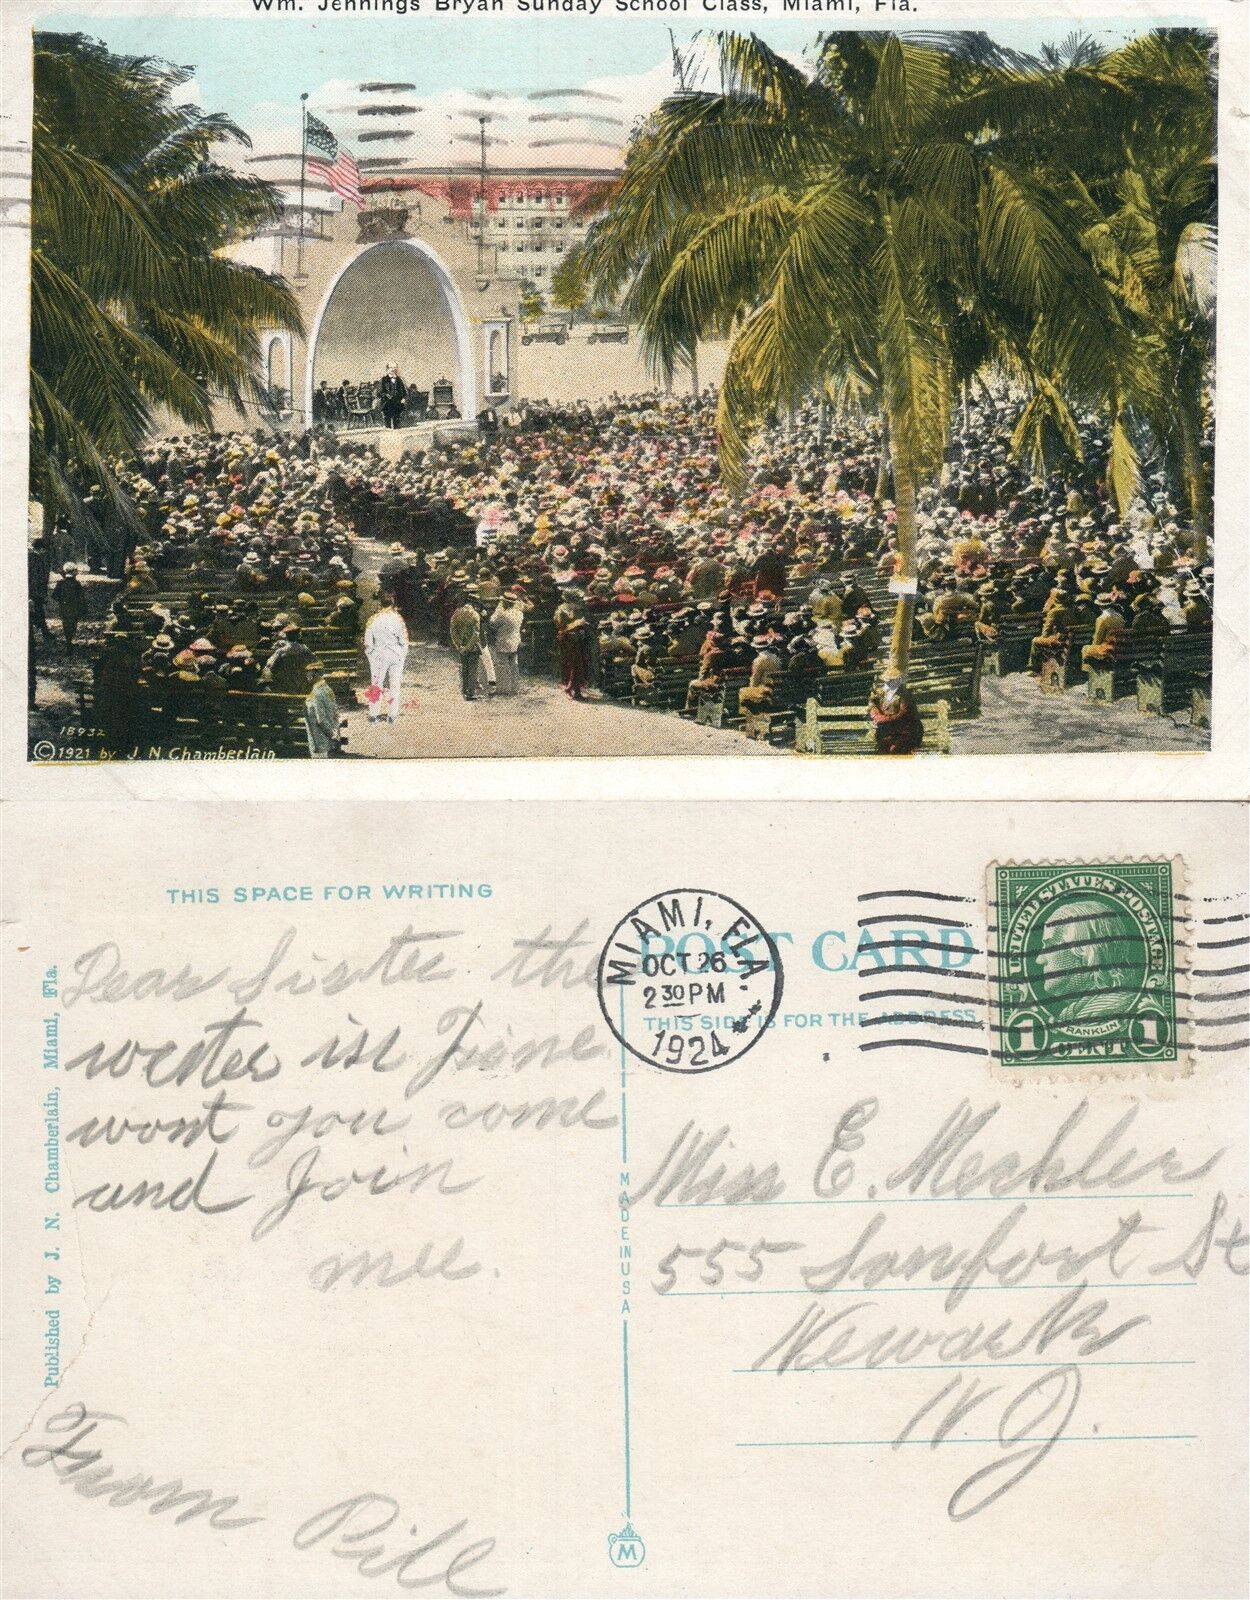 Wm. Jennings Bryan Sunday School Class, Miami, Fla.
18932
© 1921 by J. N. Chamberlain
THIS SPACE FOR WRITING
Dear Sister the
wetter ise Fine
wont you come
and Join
mee.
From Bill
Published by J. N. Chamberlain, Miami, Fla.
MADE IN USA
M
POST CARD
THIS SIDE IS FOR THE ADDRESS
MIAMI, FLA.
OCT 26
2 30 PM
1924
UNITED STATES POSTAGE
FRANKLIN
1 1
Miss E. Mechler
555 Sanfort St
Newark
N. J.